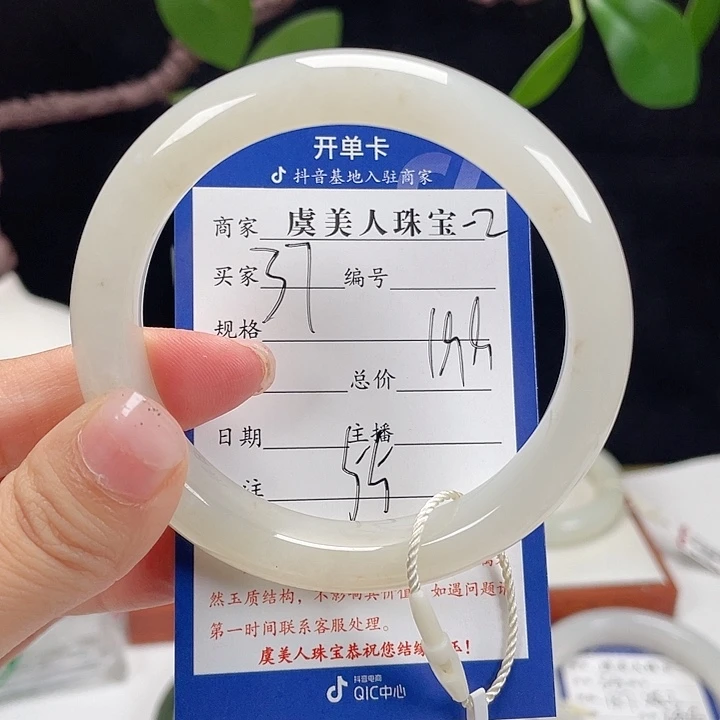 开单卡
抖音基地入驻商家
商家 虞美人珠宝-2
买家 37 编号
规格
总价
日期 主播
注
然玉质结构，不影响其价值，如遇问题
第一时间联系客服处理。
虞美人珠宝恭祝您结缘
抖音电商
QIC中心